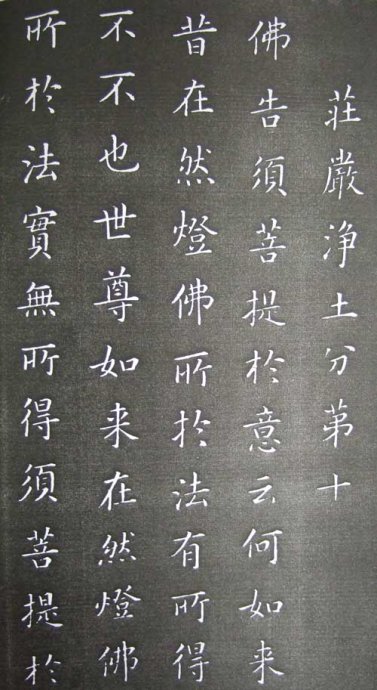 莊嚴淨土分第十
佛告須菩提於意云何如来
昔在然燈佛所於法有所得
不不也世尊如来在然燈佛
所於法實無所得須菩提於